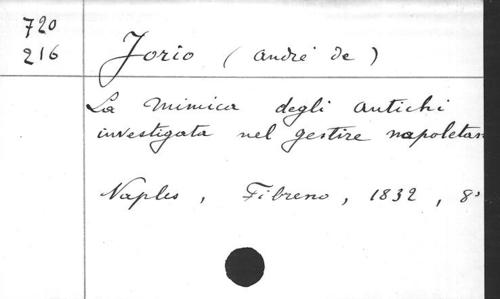 720
216
Jorio (André de)
La Mimica degli antichi
investigata nel gestire napoletan
Naples, Fibreno, 1832, 8º